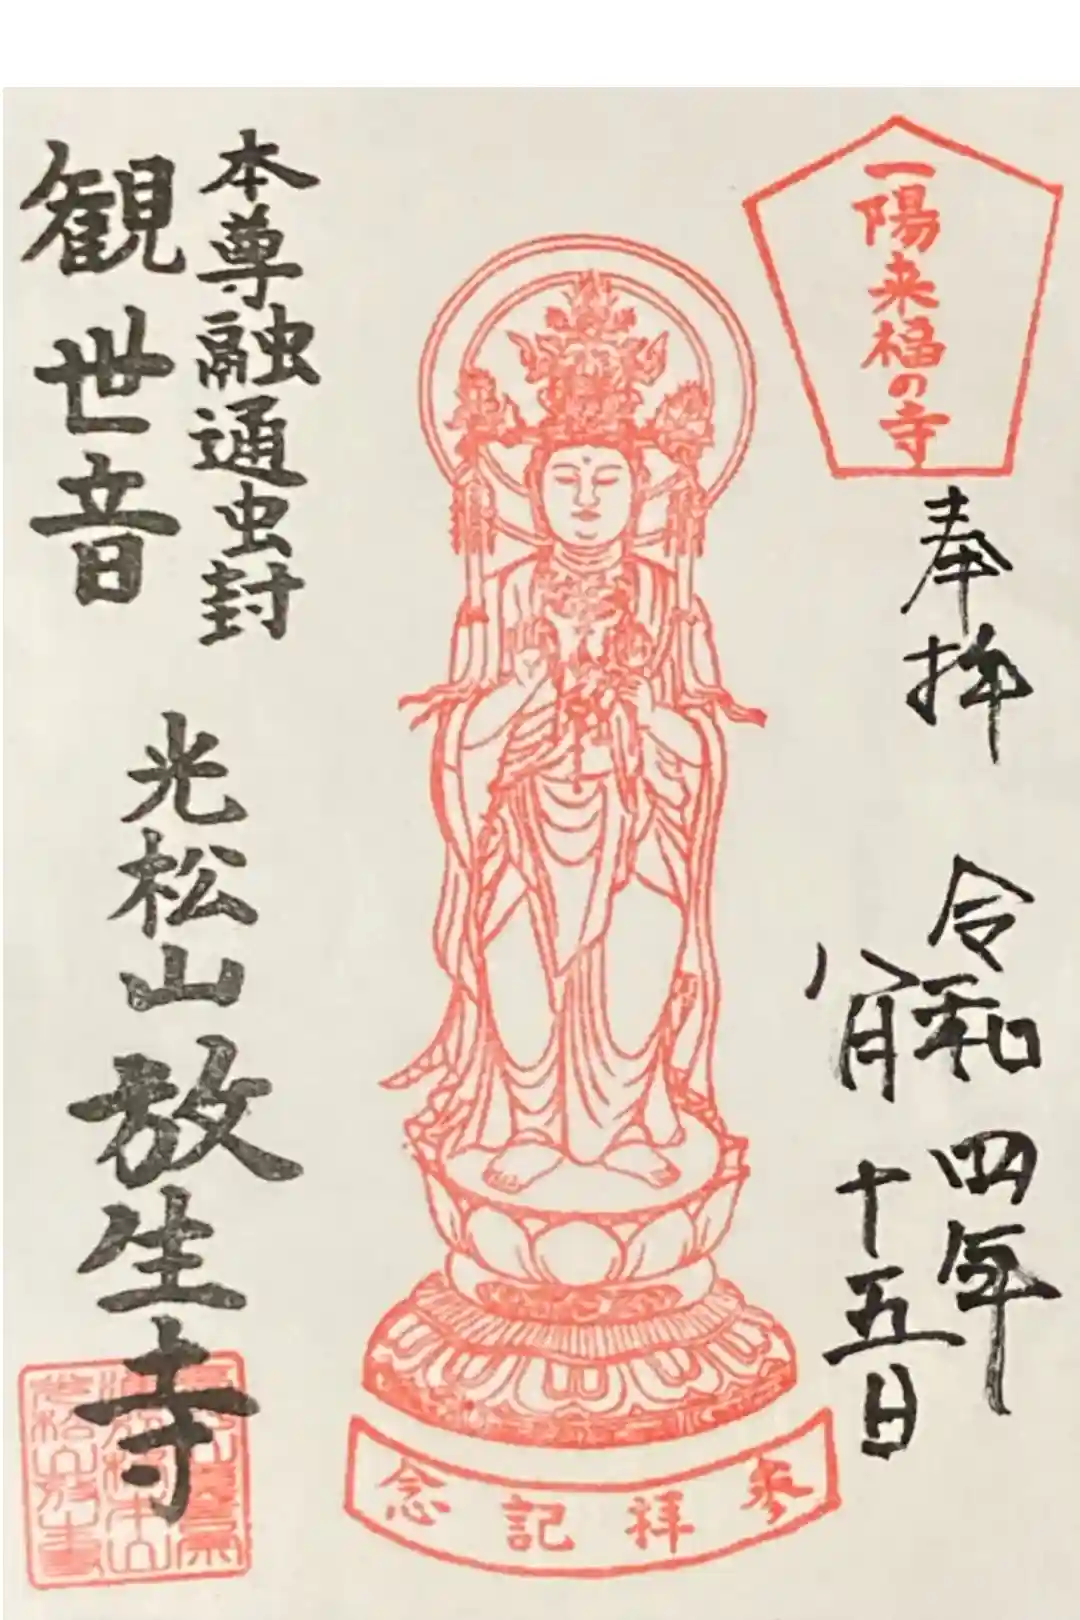 一陽来福の寺
奉拝 令和四年
八月十五日
参拝記念
本尊融通虫封
観世音
光松山放生寺